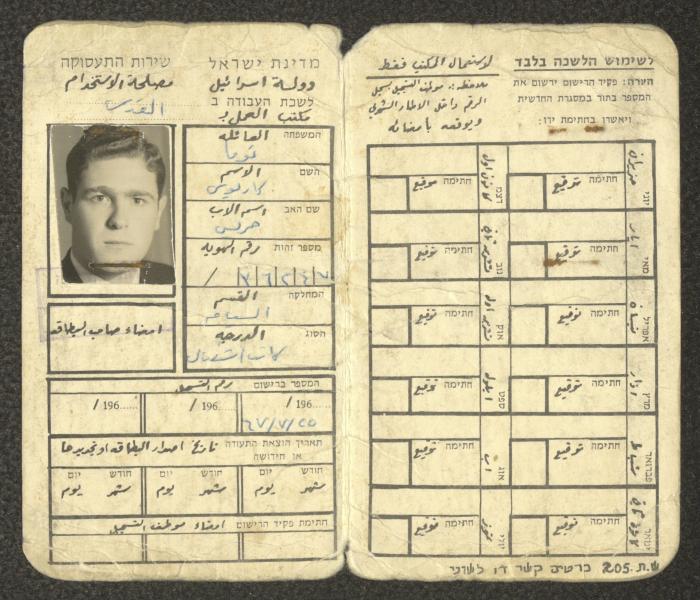 שירות התעסוקה
מصلحة الاستخدام
القدس
מדינת ישראל
دولة اسرائيل
לשכת העבודה ב
مكتب العمل ب
המשפחה العائلة
توما
השם الاسم
שם האב اسم الاب
جريس
מספר זהות رقم الهوية
המחלקה القسم
הסוג الدرجة
امضاء صاحب البطاقة
המספר ברישום رقم التسجيل
196...... / 196...... / 196...... /
٦٧/٧/٢٥
תאריך הוצאת התעודה تاريخ اصدار البطاقة او تجديدها
או חידושה
חודש יום חודש יום חודש יום
شهر يوم شهر يوم شهر يوم
חתימת פקיד הרישום امضاء موظف التسجيل
לשימוש הלשכה בלבד
لاستعمال المكتب فقط
הערה: פקיד הרישום ירשום את
המספר בתור במסגרת החדשית
ויאשרו בחתימת ידו:
ملاحظة: موظف التسجيل يسجل
الرقم داخل الاطار الشهري
ويوقعه بامضائه
יוני חתימה توقيع דצמ חתימה توقيع
מאי חתימה توقيع ايار נוב חתימה توقيع
אפריל חתימה توقيع نيسان אוק חתימה توقيع
מרץ חתימה توقيع اذار ספט חתימה توقيع ايلول
פברואר חתימה توقيع شباط אוג חתימה توقيع اب
ינואר חתימה توقيع יולי חתימה توقيع تموز
ש.ת. 205 כרטיס קשר דו לשוני